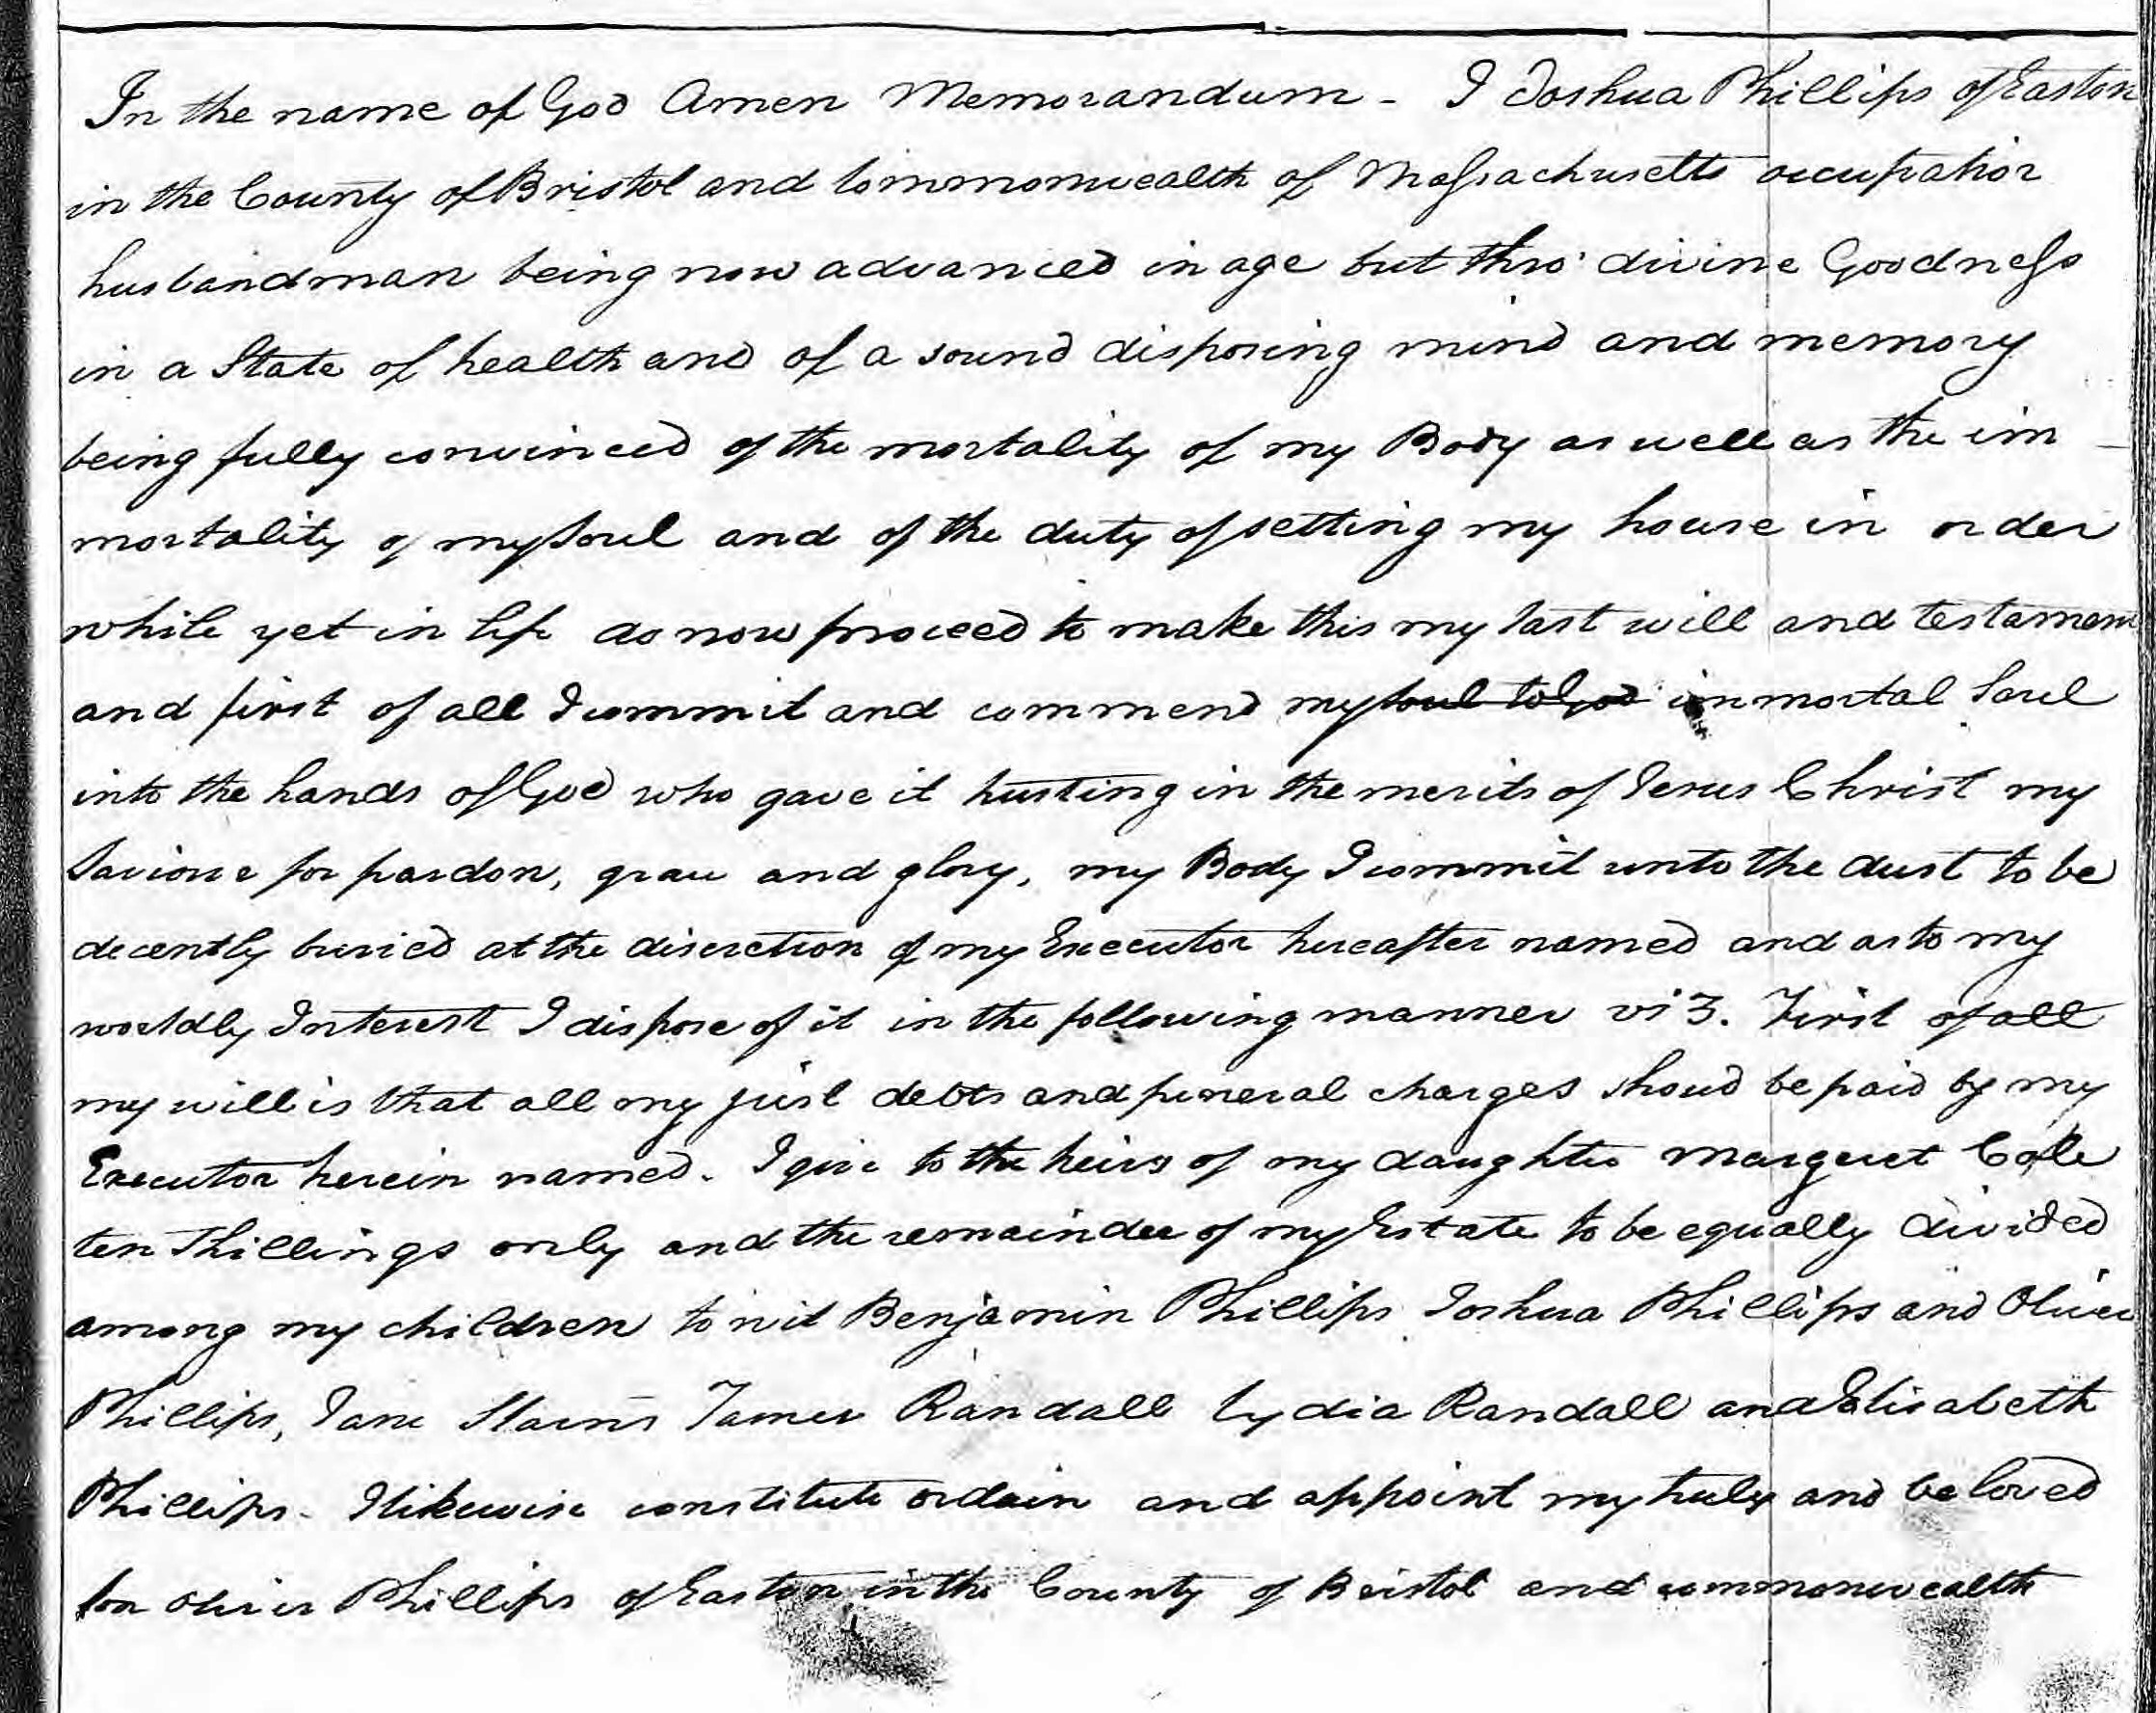 In the name of God Amen Memorandum - I Joshua Phillips of Easton
in the County of Bristol and Commonwealth of Massachusetts occupation
husbandman being now advanced in age but thro' divine Goodness
in a State of health and of a sound disposing mind and memory
being fully convinced of the mortality of my Body as well as the im
mortality of my Soul and of the duty of setting my house in order
while yet in life do now proceed to make this my last will and testament
and first of all I commit and commend my soul to God immortal Soul
into the hands of God who gave it trusting in the merits of Jesus Christ my
Saviour for pardon, grace and glory, my Body I commit unto the dust to be
decently buried at the discretion of my Executor hereafter named and as to my
worldly Interest I dispose of it in the following manner viz. First of all
my will is that all my just debts and funeral charges shoud be paid by my
Executor herein named. I give to the heirs of my daughter Margeret Cole
ten Shillings only and the remainder of my Estate to be equally divided
among my children to wit Benjamin Phillips Joshua Phillips and Oliver
Phillips, Jane Tamer Randall Lydia Randall and Elisabeth
Phillips. I likewise constitute ordain and appoint my truly and beloved
Son Oliver Phillips of Easton in the County of Bristol and commonwealth